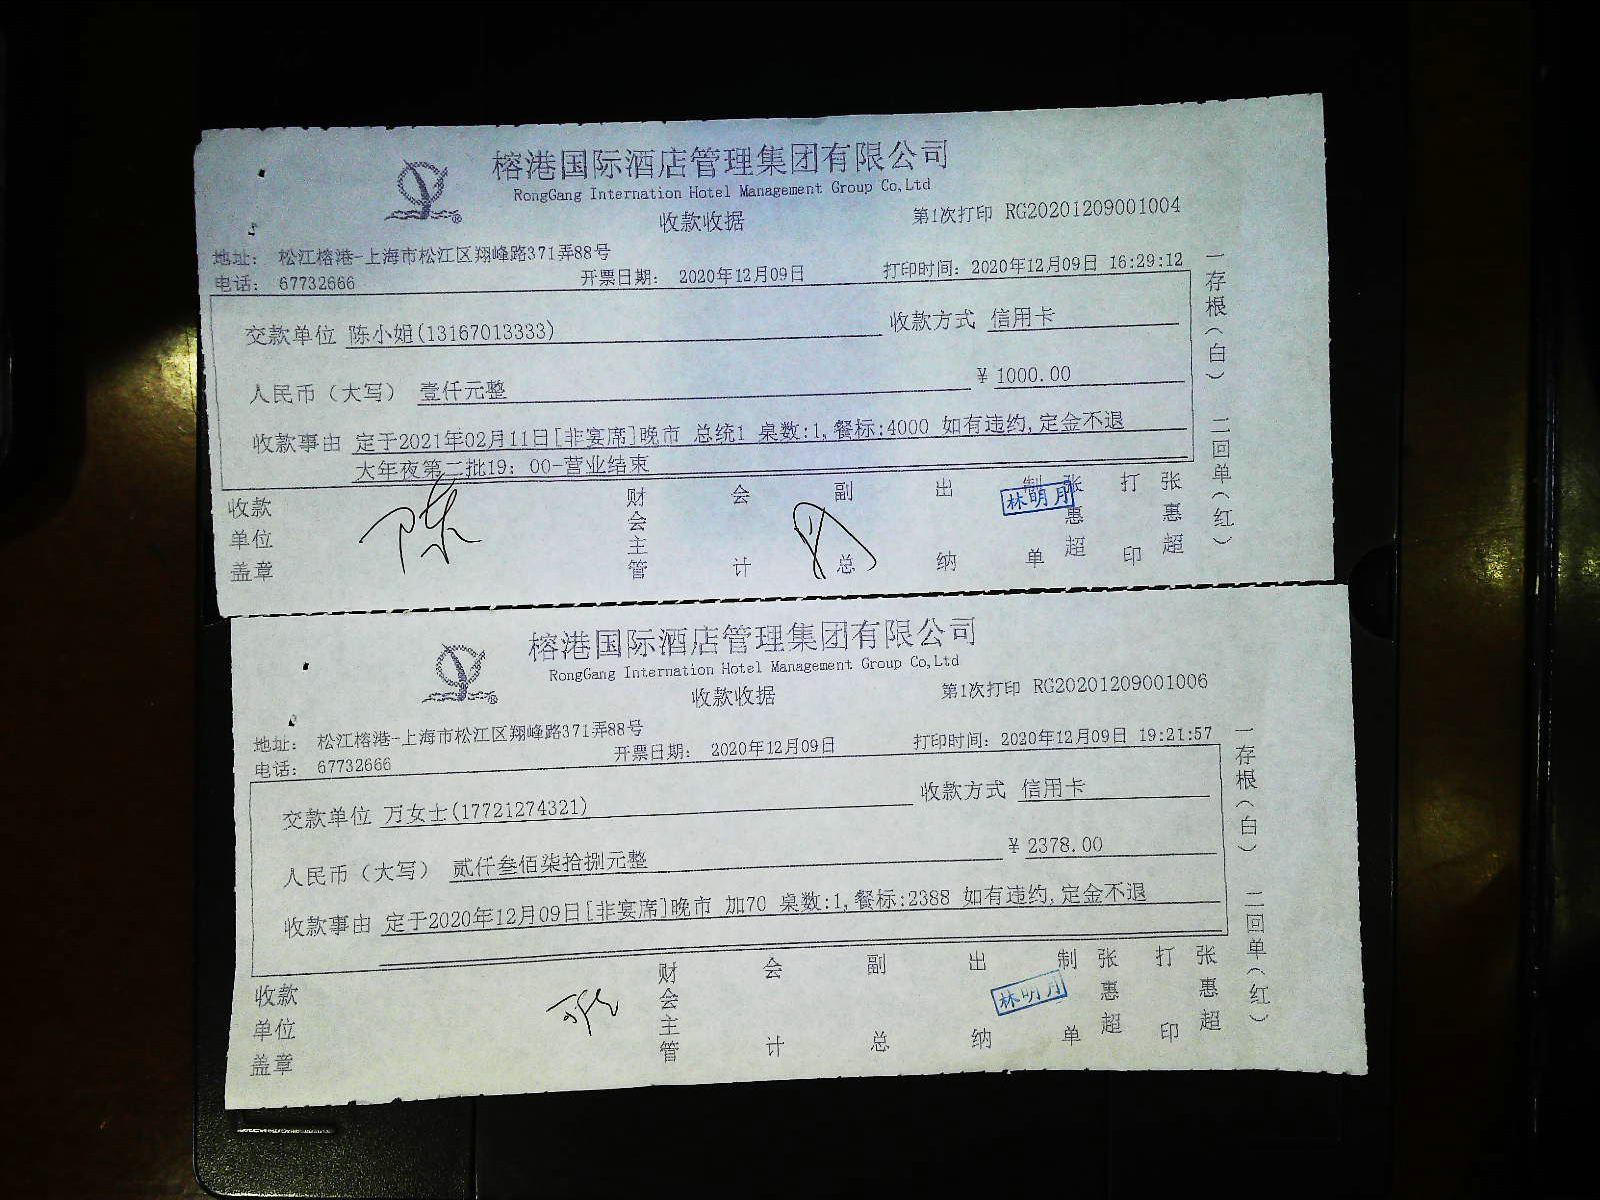 榕港国际酒店管理集团有限公司
RongGang Internation Hotel Management Group Co,Ltd
收款收据
第1次打印 RG20201209001004
地址: 松江榕港-上海市松江区翔峰路371弄88号
电话: 67732666
开票日期: 2020年12月09日
打印时间: 2020年12月09日 16:29:12
交款单位 陈小姐(13167013333)
收款方式 信用卡
人民币(大写) 壹仟元整
¥ 1000.00
收款事由 定于2021年02月11日[非宴席]晚市 总统1 桌数:1,餐标:4000 如有违约,定金不退
大年夜第二批19: 00-营业结束
收款单位盖章
陈
财会主管
会计
副总
出纳
林明月
制单
张惠超
打印
张惠超
一存根(白)
二回单(红)
榕港国际酒店管理集团有限公司
RongGang Internation Hotel Management Group Co,Ltd
收款收据
第1次打印 RG20201209001006
地址: 松江榕港-上海市松江区翔峰路371弄88号
电话: 67732666
开票日期: 2020年12月09日
打印时间: 2020年12月09日 19:21:57
交款单位 万女士(17721274321)
收款方式 信用卡
人民币(大写) 贰仟叁佰柒拾捌元整
¥ 2378.00
收款事由 定于2020年12月09日[非宴席]晚市 加70 桌数:1,餐标:2388 如有违约,定金不退
收款单位盖章
财会主管
会计
副总
出纳
林明月
制单
张惠超
打印
张惠超
一存根(白)
二回单(红)